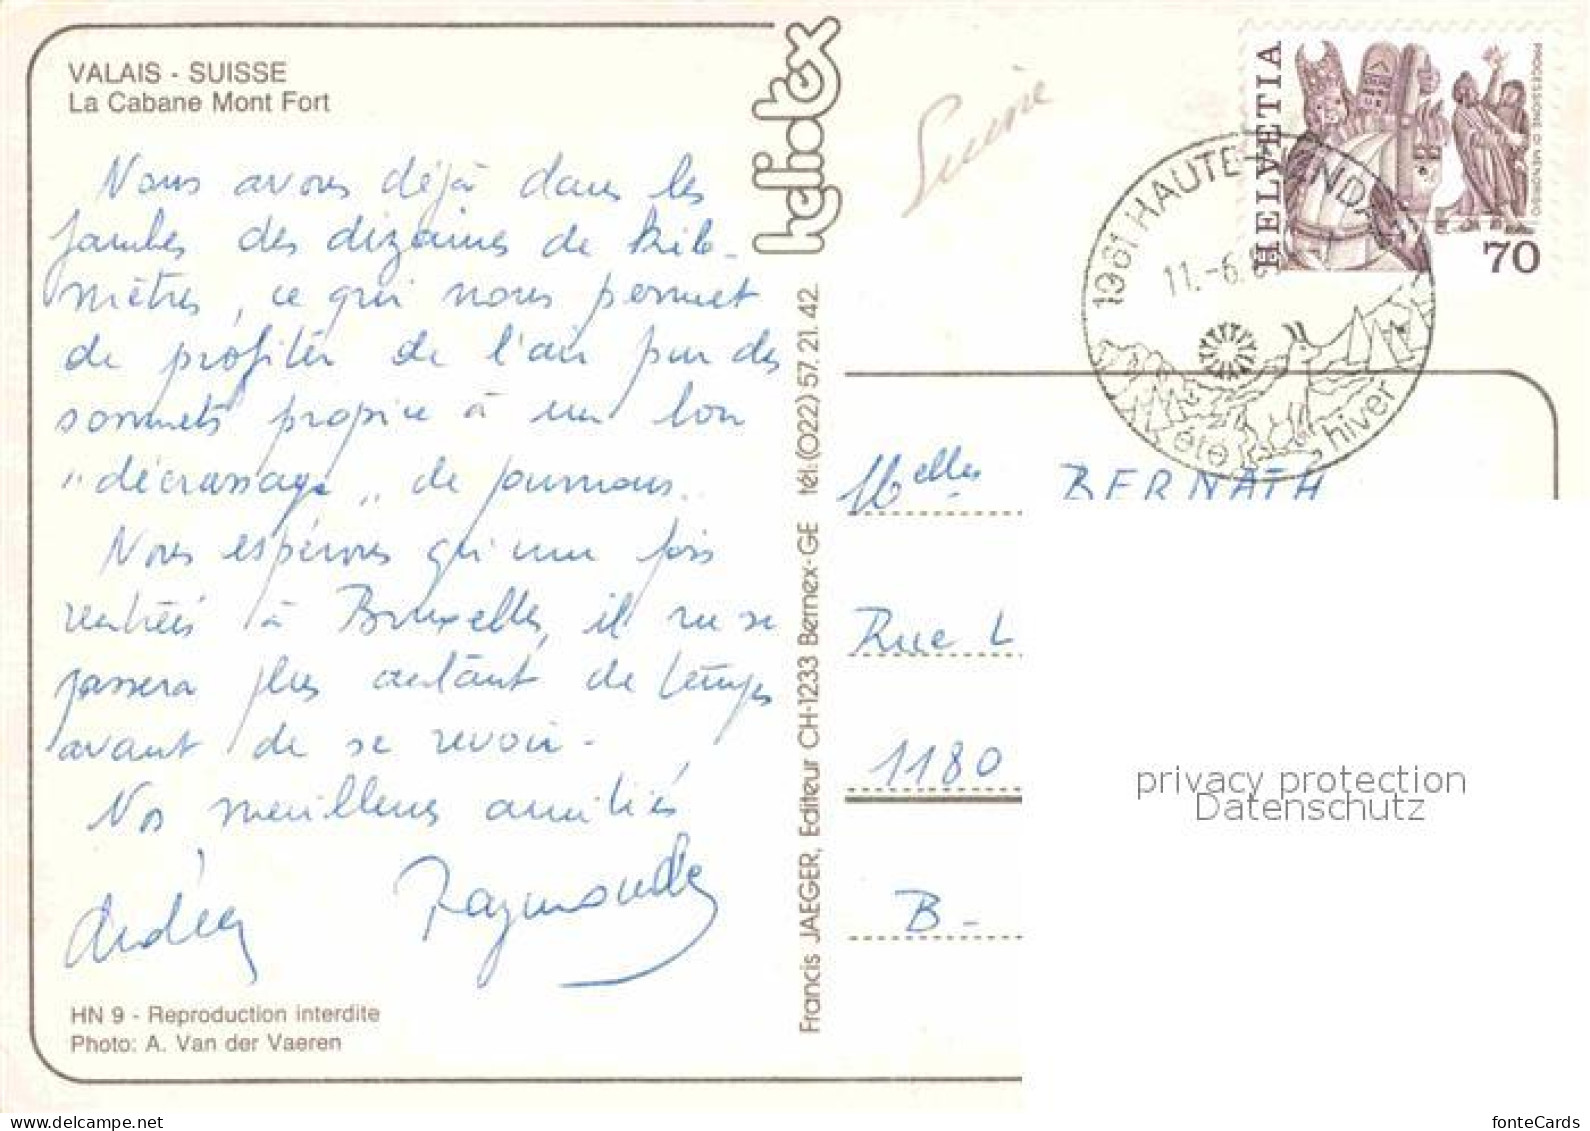 VALAIS - SUISSE
La Cabane Mont Fort
Nous avons déjà dans les
jambes des dizaines de kilo-
mètres, ce qui nous permet
de profiter de l'air pur des
sommets propice à un bon
"décrassage" de poumons.
Nous espérons qu'une fois
rentrées à Bruxelles, il ne se
passera plus autant de temps
avant de se revoir.
Nos meilleures amitiés
Andrée Raymonde
HN 9 - Reproduction interdite
Photo: A. Van der Vaeren
heliotex
Francis JAEGER, Editeur CH-1233 Bernex-GE tél: (022) 57. 21. 42.
Suisse
HELVETIA
PROCESSIONE DI MENDRISIO
70
1961 HAUTE-NENDAZ
11.-6.
été hiver
Melles BERNATH
Rue L
1180
B-
privacy protection
Datenschutz
fonteCards